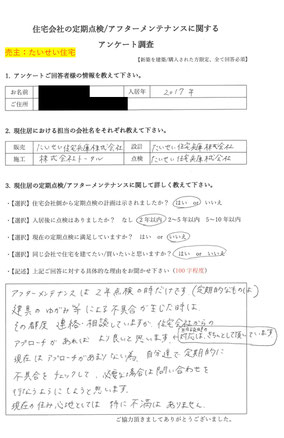 住宅会社の定期点検/アフターメンテナンスに関する
アンケート調査
売主：たいせい住宅
【新築を建築/購入された方限定、全て回答必須】
1. アンケートご回答者様の情報を教えて下さい。
お名前 入居年 2017年
ご住所
2. 現住居における担当の会社名をそれぞれ教えて下さい。
販売 たいせい住宅兵庫株式会社 設計 たいせい住宅兵庫株式会社
施工 株式会社トータル 点検 たいせい住宅兵庫株式会社
3. 現住居の定期点検/アフターメンテナンスに関して詳しく教えて下さい。
・【選択】住宅会社側から定期点検の計画は示されましたか？ はい or いいえ
・【選択】入居後に点検はありましたか？ なし 2年以内 2～5年以内 5～10年以内
・【選択】現在の定期点検に満足していますか？ はい or いいえ
・【選択】同じ会社で住宅を建てたい/買いたいと思いますか？ はい or いいえ
・【記述】上記ご回答に対する具体的な理由をお聞かせ下さい（100字程度）
アフターメンテナンスは2年点検の時だけです(定期的なものは)
建具のゆがみ等による不具合が生じた時は、
その都度 連絡・相談していますが、住宅会社からの
アプローチがあれば より良いと思います
対応は、きちっとして頂いています
現在はアプローチがあまりない為、自分達で定期的に
不具合をチェックして、必要な場合は問い合わせを
行なうようにしようと思います。
現在の住み心地としては 特に不満はありません。
ご協力頂きましてありがとうございました。